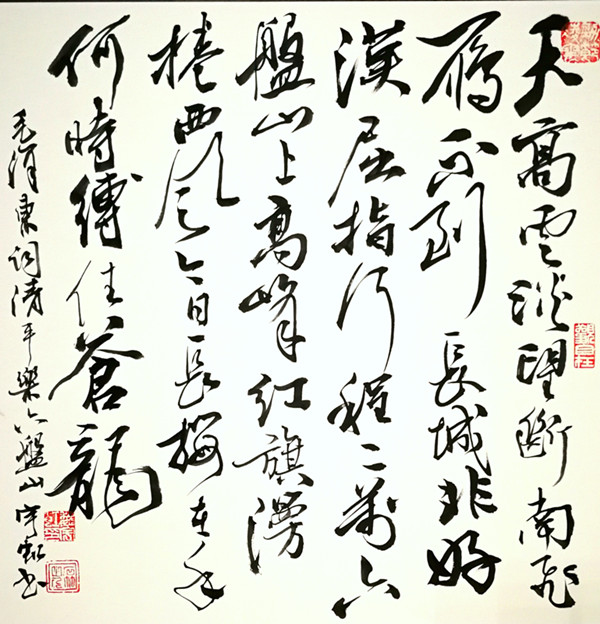 天高雲淡望斷南飛
雁不到長城非好
漢屈指行程二萬六
盤山上高峰紅旗漫
捲西風今日長纓在手
何時縛住蒼龍
毛澤東詞清平樂六盤山